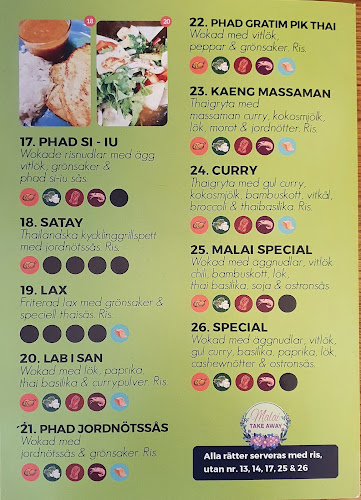 18
20
17. PHAD SI - IU
Wokade risnudlar med ägg
vitlök, grönsaker &
phad si-iu sås.
18. SATAY
Thailändska kycklinggrillspett
med jordnötssås. Ris.
19. LAX
Friterad lax med grönsaker &
speciell thaisås. Ris.
20. LAB I SAN
Wokad med lök, paprika,
thai basilika & currypulver. Ris.
21. PHAD JORDNÖTSSÅS
Wokad med
jordnötssås & grönsaker. Ris.
22. PHAD GRATIM PIK THAI
Wokad med vitlök,
peppar & grönsaker. Ris.
23. KAENG MASSAMAN
Thaigryta med
massaman curry, kokosmjölk,
lök, morot & jordnötter. Ris.
24. CURRY
Thaigryta med gul curry,
kokosmjölk, bambuskott, vitkål,
broccoli & thaibasilika. Ris.
25. MALAI SPECIAL
Wokad med äggnudlar, vitlök
chili, bambuskott, lök,
thai basilika, soja & ostronsås
26. SPECIAL
Wokad med äggnudlar, vitlök,
gul curry, basilika, paprika, lök,
cashewnötter & ostronsås.
Malai
TAKE AWAY
Alla rätter serveras med ris,
utan nr. 13, 14, 17, 25 & 26